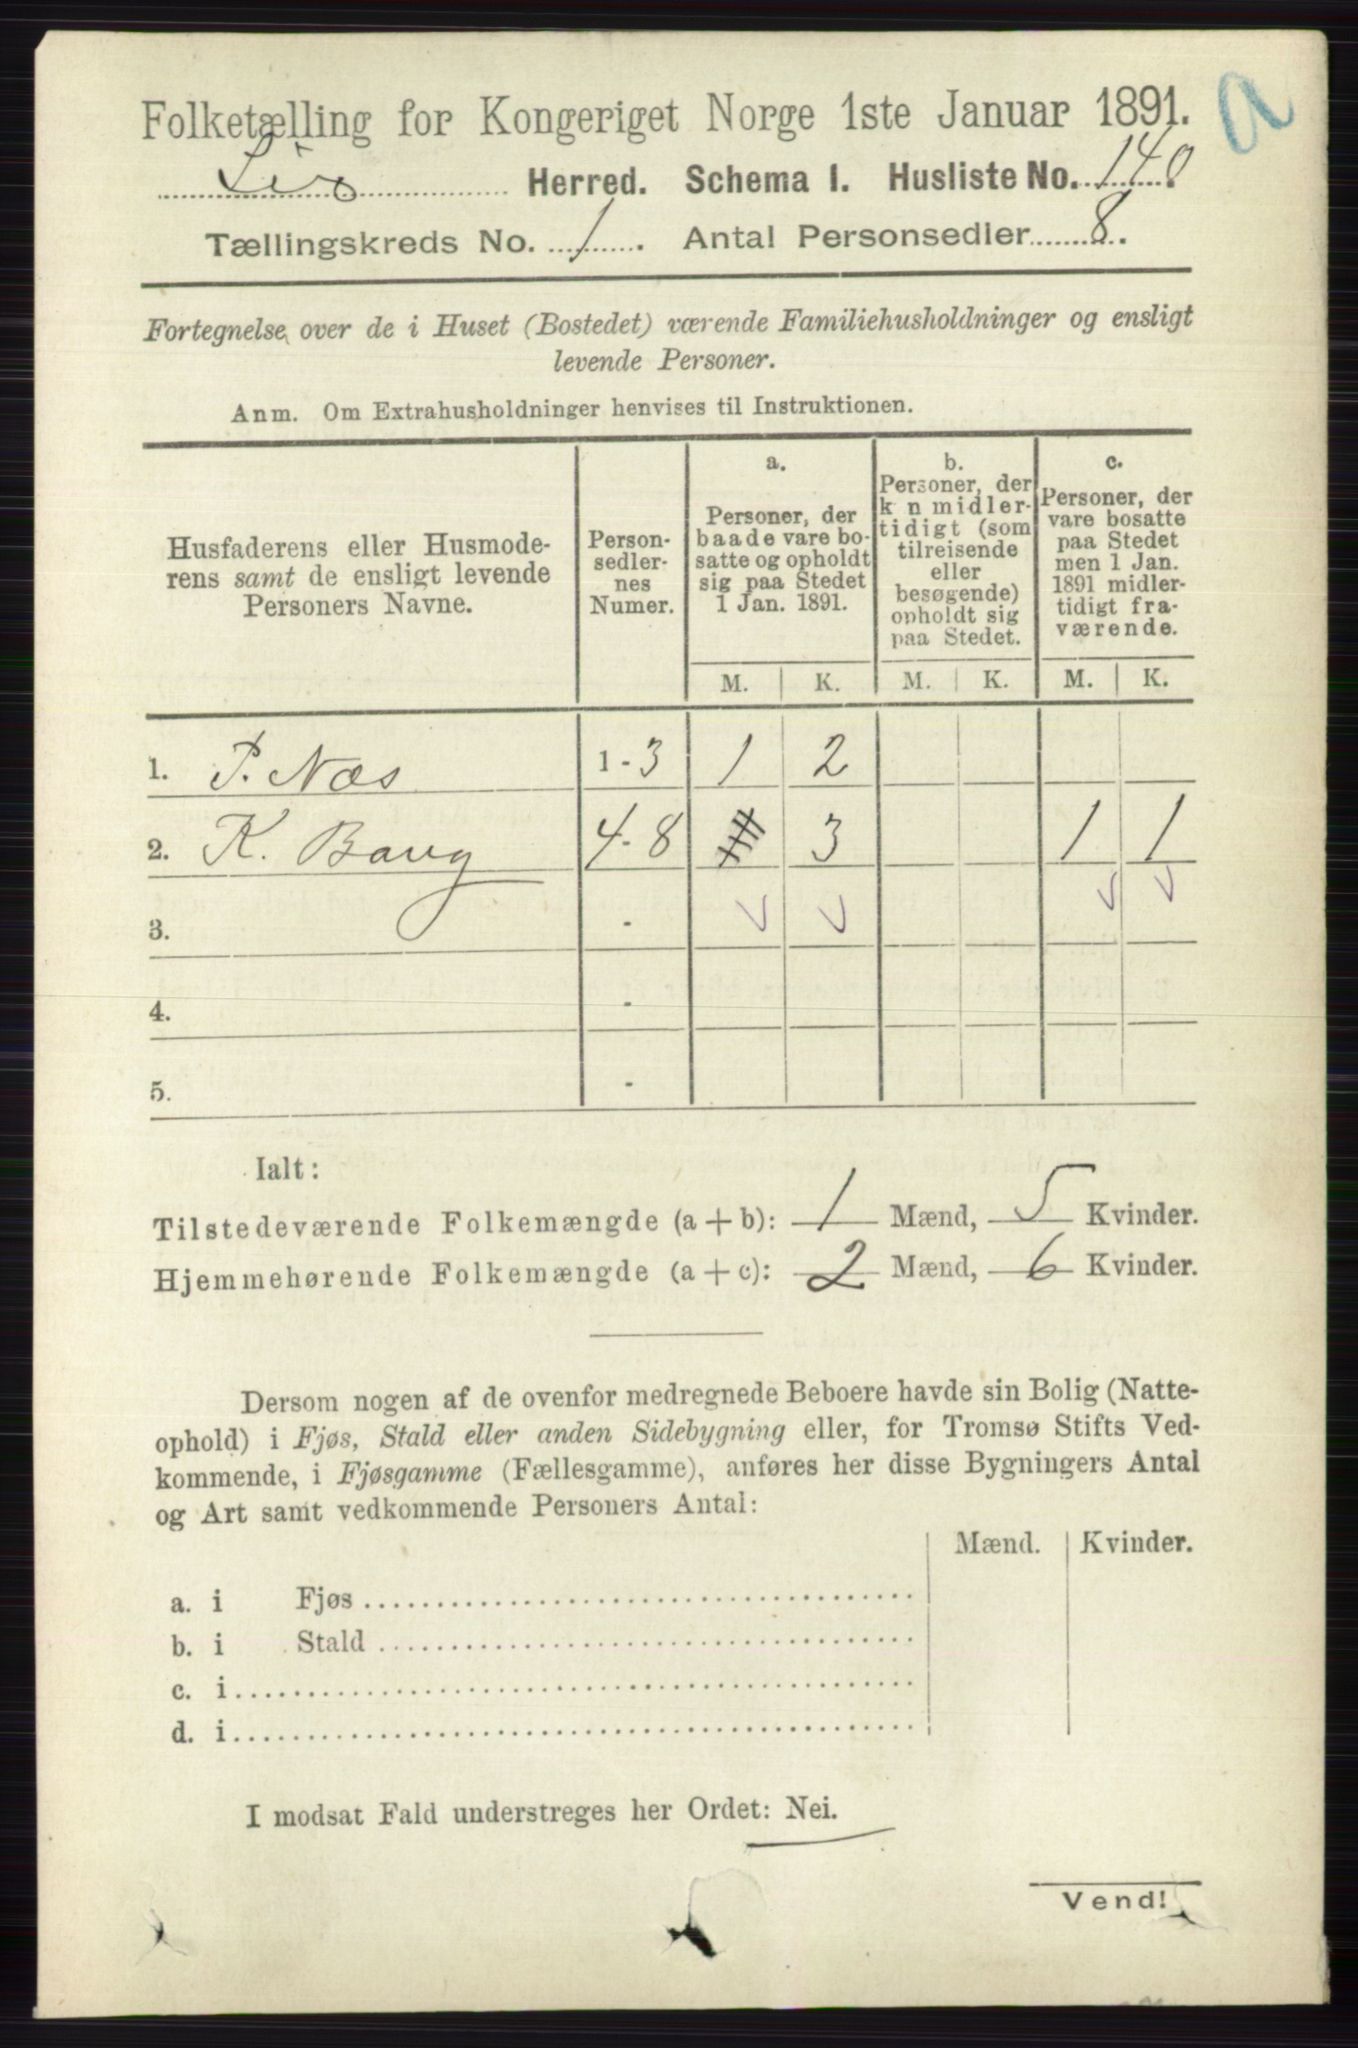 Folketælling for Kongeriget Norge 1ste Januar 1891. a
Lier Herred. Schema I. Husliste No. 140.
Tællingskreds No. 1. Antal Personsedler 8.
Fortegnelse over de i Huset (Bostedet) værende Familiehusholdninger og ensligt
levende Personer.
Anm. Om Extrahusholdninger henvises til Instruktionen.
Husfaderens eller Husmode-
rens samt de ensligt levende
Personers Navne.
Person-
sedler-
nes
Numer.
a.
Personer, der
baade vare bo-
satte og opholdt
sig paa Stedet
1 Jan. 1891.
b.
Personer, der
k n midler-
tidigt (som
tilreisende
eller
besøgende)
opholdt sig
paa Stedet.
c.
Personer, der
vare bosatte
paa Stedet
men 1 Jan.
1891 midler-
tidigt fra-
værende.
M. K. M. K. M. K.
1. P. Næs 1-3 1 2
2. K. Baug 4-8 3 1 1
3. -
4. -
5. -
Ialt:
Tilstedeværende Folkemængde (a+b): 1 Mænd, 5 Kvinder.
Hjemmehørende Folkemængde (a+c): 2 Mænd, 6 Kvinder.
Dersom nogen af de ovenfor medregnede Beboere havde sin Bolig (Natte-
ophold) i Fjøs, Stald eller anden Sidebygning eller, for Tromsø Stifts Ved-
kommende, i Fjøsgamme (Fællesgamme), anføres her disse Bygningers Antal
og Art samt vedkommende Personers Antal:
Mænd. Kvinder.
a. i Fjøs
b. i Stald
c. i
d. i
I modsat Fald understreges her Ordet: Nei.
Vend!